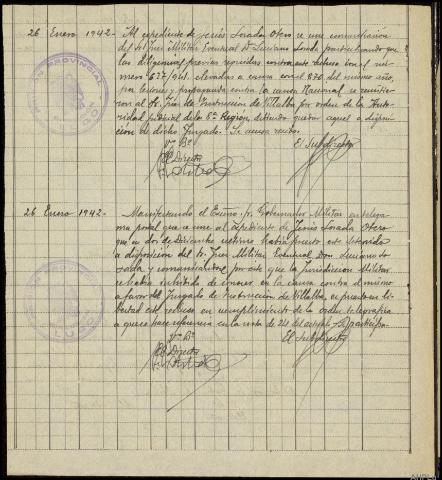 26 Enero 1942.- Al expediente de Jesús Losada Otero se une comunicación
del Sr. Juez Militar Eventual D. Luciano Losada participando que
las diligencias previas seguidas contra este recluso con el nú-
mero 627/941. elevadas a causa con el 870 del mismo año,
por lesiones y propaganda contra la causa Nacional se remitie-
ron al Sr. Juez de Instrucción de Villalba por orden de la Auto-
ridad judicial de la 8ª Región, debiendo quedar aquel a disposi-
ción de dicho Juzgado. Se acusa recibo.
Vº Bº
El Director
El Subdirector
PRISIÓN PROVINCIAL
LUGO
26 Enero 1942.- Manifestando el Excmo. Sr. Gobernador Militar en telegra-
ma postal que se une al expediente de Jesús Losada Otero
que en dos de Diciembre último había puesto este detenido
a disposición del Sr. Juez Militar Eventual Don Luciano Lo-
sada y comunicándose por este que la Jurisdicción Militar
se había inhibido de conocer en la causa contra el mismo
a favor del Juzgado de Instrucción de Villalba, es puesto en li-
bertad este recluso en cumplimiento de la orden telegráfica
a que se hace referencia en la nota de 24 del actual. Se participa.
Vº Bº
El Director
El Subdirector
PRISIÓN PROVINCIAL
LUGO